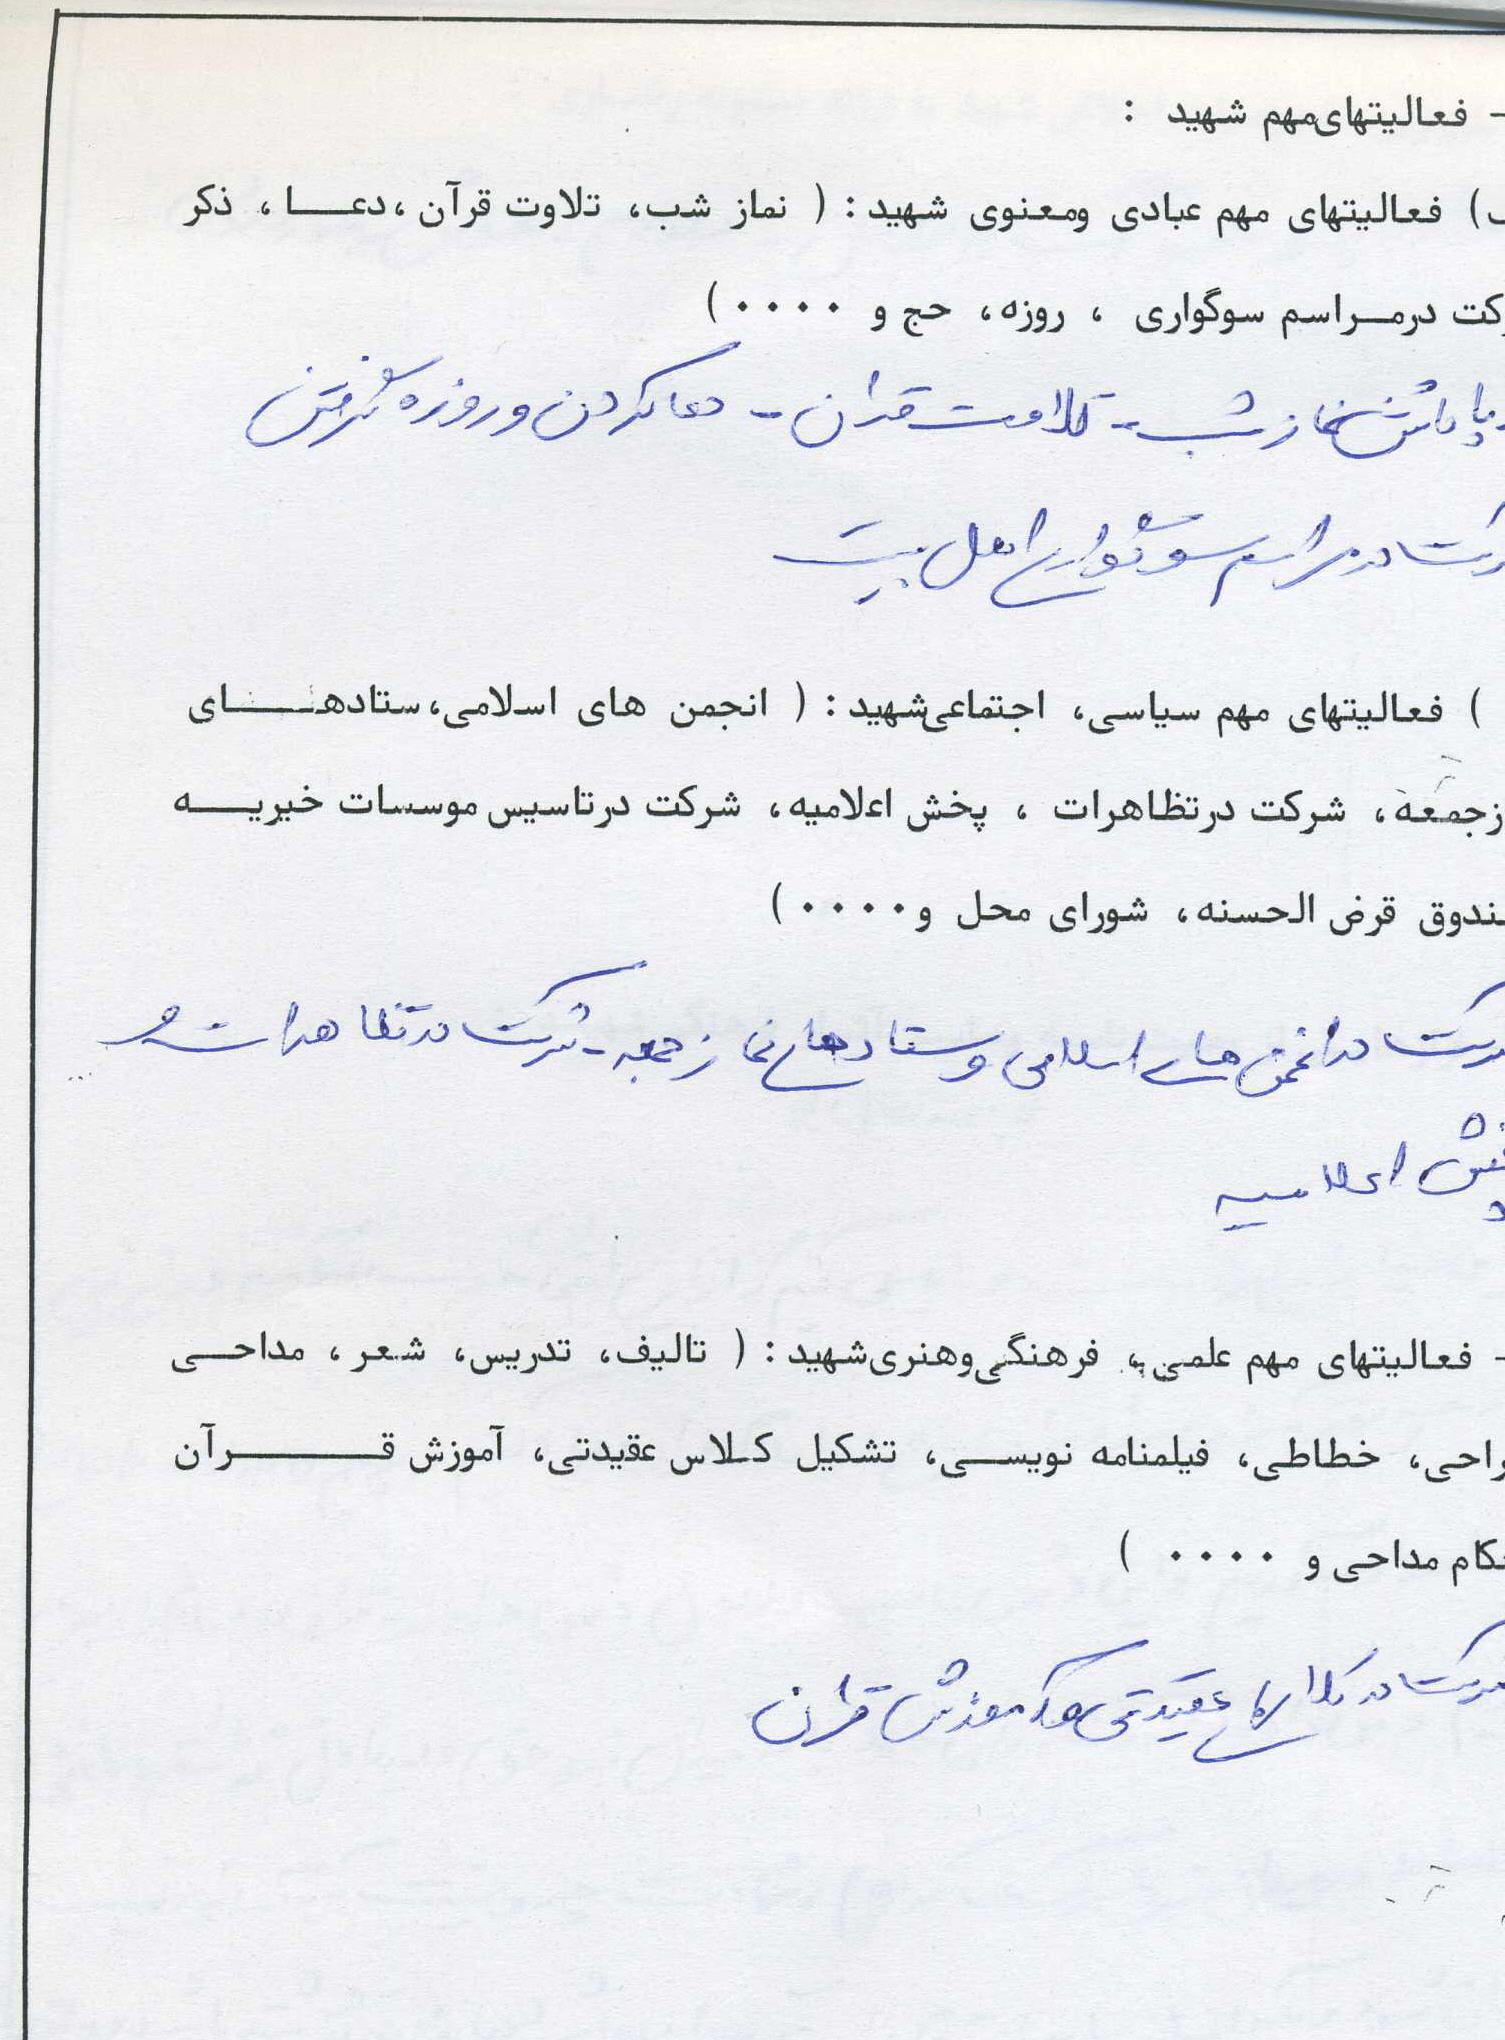 - فعالیتهای مهم شهید :
ف) فعالیتهای مهم عبادی ومعنوی شهید : ( نماز شب، تلاوت قرآن ، دعـــا ، ذکر
کت درمــراسم سوگواری ، روزه، حج و ۰۰۰۰ )
برپا داشتن نماز شب - تلاوت قران - دعا کردن و روزه گرفتن
رکت در مراسم سوگواری اهل بیت
) فعالیتهای مهم سیاسی، اجتماعی شهید : ( انجمن های اسلامی، ستادهــــای
زجمعه ، شرکت درتظاهرات ، پخش اعلامیه ، شرکت درتاسیس موسسات خیریـــه
ندوق قرض الحسنه، شورای محل و ۰۰۰۰ )
رکت در انجمن های اسلامی و ستادهای نماز جمعه - شرکت در تظاهرات و
پخش اعلامیه
- فعالیتهای مهم علمی ، فرهنگی وهنری شهید : ( تالیف، تدریس، شعر ، مداحــی
راحی، خطاطی، فیلمنامه نویســی، تشکیل کـلاس عقیدتی، آموزش قــــــرآن
کام مداحی و ۰۰۰۰ )
رکت در کلاسهای عقیدتی و آموزش قران